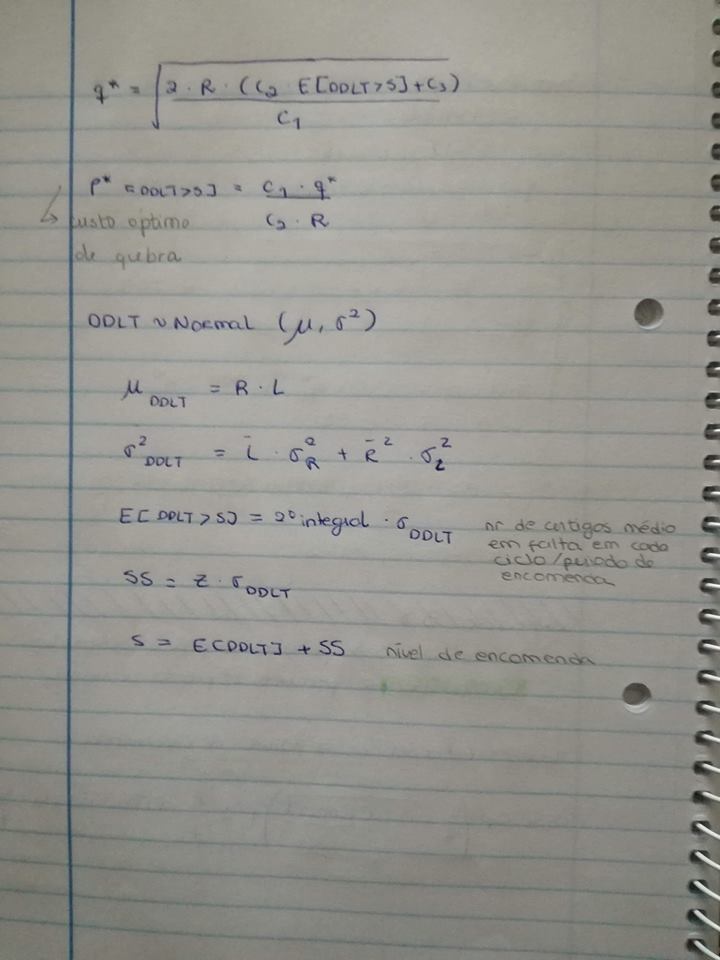 q* = √(2 · R · (C₂ · E[DDLT>S] + C₃) / C₁)
P* [DDLT>S] = C₁ · q* / C₂ · R
↳ custo óptimo
de quebra
DDLT ~ Normal (μ, σ²)
μ DDLT = R · L
σ² DDLT = L̄ · σ²R + R̄² · σ²L
E[DDLT>S] = 2º integral · σ DDLT
nr de artigos médio
em falta em cada
ciclo/período de
encomenda
SS = Z · σ DDLT
S = E[DDLT] + SS nível de encomenda